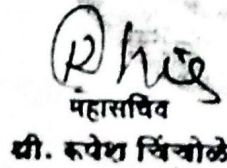 महासचिव
श्री. रूपेश चिंचोळे